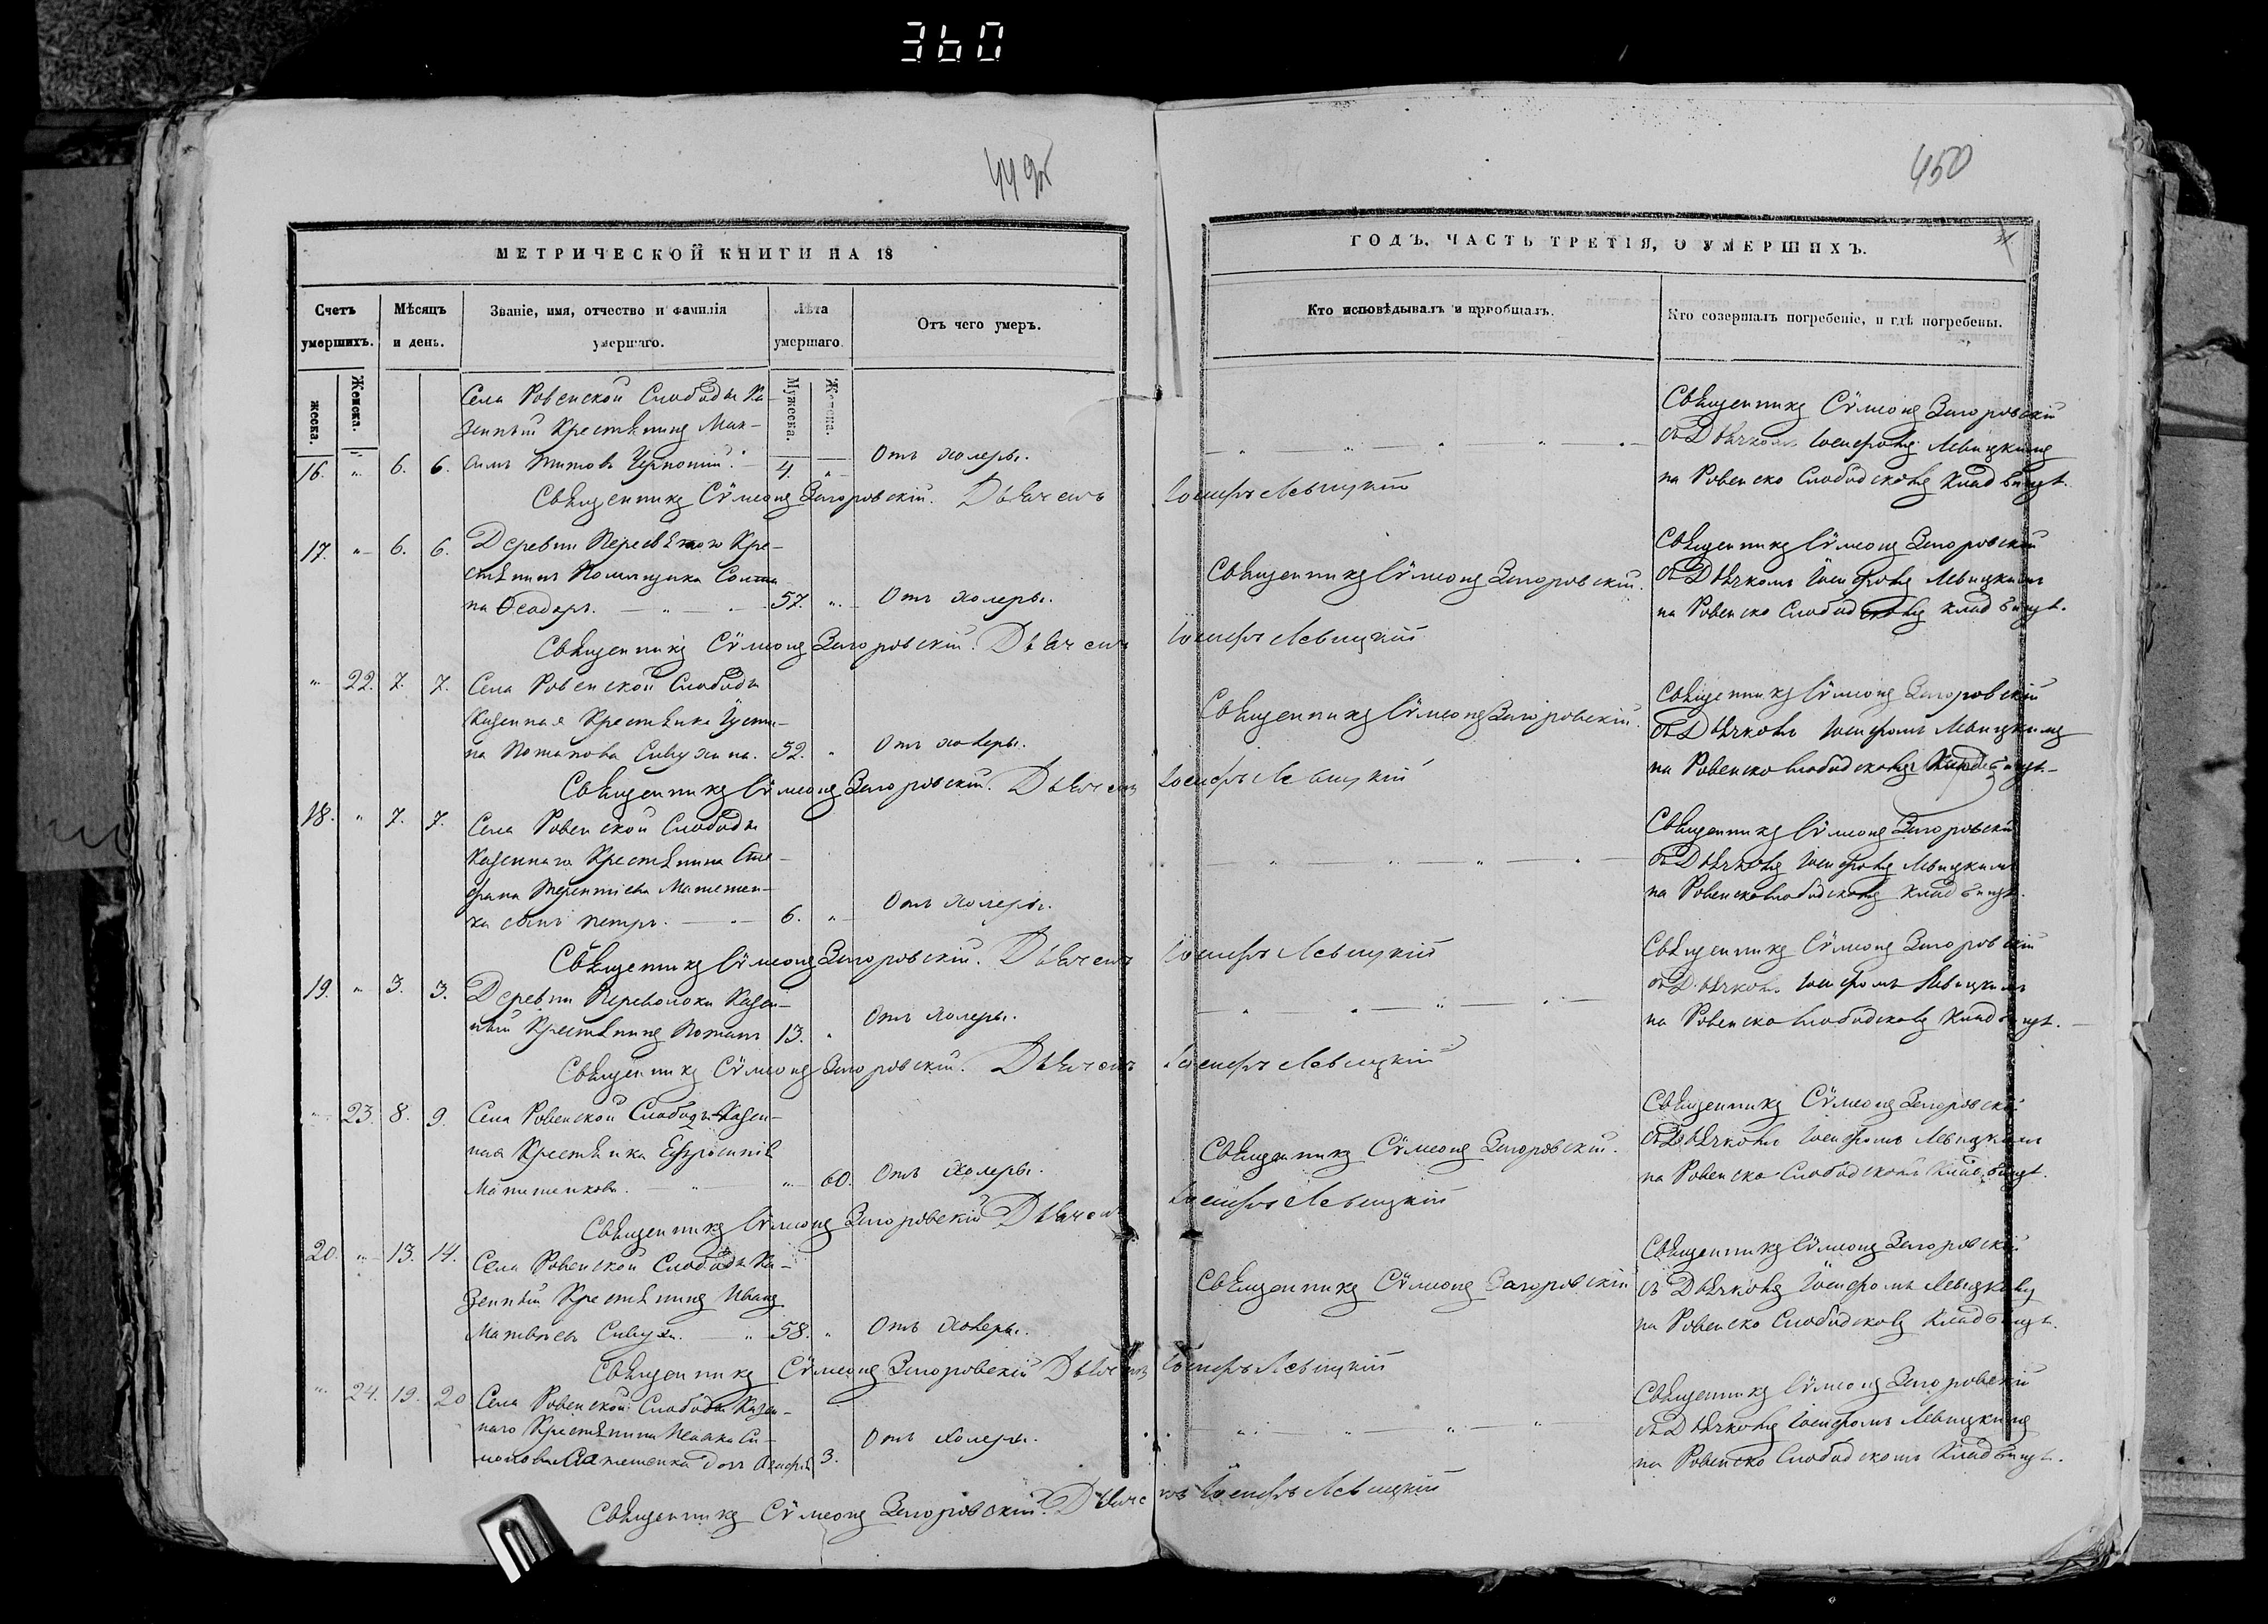 360
449об
450
МЕТРИЧЕСКОЙ КНИГИ НА 18
Счетъ умершихъ.
Мѣсяцъ и день.
Званіе, имя, отчество и фамилія умершаго.
Лѣта умершаго.
Отъ чего умеръ.
жеска.
Женска.
Мужеска.
Женска.
Села Ровенской Слободы Ка-
зенный Крестьянинъ Мак-
16. " 6. 6. симъ Титовъ 4. " Отъ холеры.
Священникъ Сѵмеонъ Загоровскій. Дьячекъ Іосифъ Левицкій
17. " 6. 6. Деревни Кре-
стьянинъ Помѣщика
57. " Отъ холеры.
Священникъ Сѵмеонъ Загоровскій. Дьячекъ Іосифъ Левицкій
" 22. 7. 7. Села Ровенской Слободы
Казенная Крестьянка Густи-
на Потапова 52. " Отъ холеры.
Священникъ Сѵмеонъ Загоровскій. Дьячекъ Іосифъ Левицкій
18. " 7. 7. Села Ровенской Слободы
Казеннаго Крестьянина Сте-
фана Терентіева
ка сынъ Петръ. 6. " Отъ холеры.
Священникъ Сѵмеонъ Загоровскій. Дьячекъ Іосифъ Левицкій
19. " 3. 3. Деревни Переволоки Казен-
ный Крестьянинъ Потапъ 13. " Отъ холеры.
Священникъ Сѵмеонъ Загоровскій. Дьячекъ Іосифъ Левицкій
" 23. 8. 9. Села Ровенской Слободы Казен-
ная Крестьянка Ефросинія
" 60. Отъ холеры.
Священникъ Сѵмеонъ Загоровскій Дьячекъ Іосифъ Левицкій
20. " 13. 14. Села Ровенской Слободы Ка-
зенный Крестьянинъ Иванъ
Матвѣевъ " 58. " Отъ холеры.
Священникъ Сѵмеонъ Загоровскій Дьячекъ Іосифъ Левицкій
" 24. 19. 20 Села Ровенской Слободы Казен-
наго Крестьянина
3. Отъ холеры.
Священникъ Сѵмеонъ Загоровскій. Дьячекъ Іосифъ Левицкій
ГОДЪ, ЧАСТЬ ТРЕТІЯ, О УМЕРШИХЪ.
Кто исповѣдывалъ и пріобщалъ.
Кто совершалъ погребеніе, и гдѣ погребены.
Священникъ Сѵмеонъ Загоровскій
съ Дьячкомъ Іосифомъ Левицкимъ
на Ровенско Слободскомъ Кладбищѣ.
Священникъ Сѵмеонъ Загоровскій.
Священникъ Сѵмеонъ Загоровскій
съ Дьячкомъ Іосифомъ Левицкимъ
на Ровенско Слободскомъ кладбищѣ.
Священникъ Сѵмеонъ Загоровскій.
Священникъ Сѵмеонъ Загоровскій
съ Дьячкомъ Іосифомъ Левицкимъ
на Ровенско Слободскомъ Кладбищѣ.
Священникъ Сѵмеонъ Загоровскій
съ Дьячкомъ Іосифомъ Левицкимъ
на Ровенско Слободскомъ Кладбищѣ.
Священникъ Сѵмеонъ Загоровскій
съ Дьячкомъ Іосифомъ Левицкимъ
на Ровенско Слободскомъ Кладбищѣ.
Священникъ Сѵмеонъ Загоровскій.
Священникъ Сѵмеонъ Загоровскій
съ Дьячкомъ Іосифомъ Левицкимъ
на Ровенско Слободскомъ Кладбищѣ.
Священникъ Сѵмеонъ Загоровскій
Священникъ Сѵмеонъ Загоровскій
съ Дьячкомъ Іосифомъ Левицкимъ
на Ровенско Слободскомъ Кладбищѣ.
Священникъ Сѵмеонъ Загоровскій
съ Дьячкомъ Іосифомъ Левицкимъ
на Ровенско Слободскомъ Кладбищѣ.